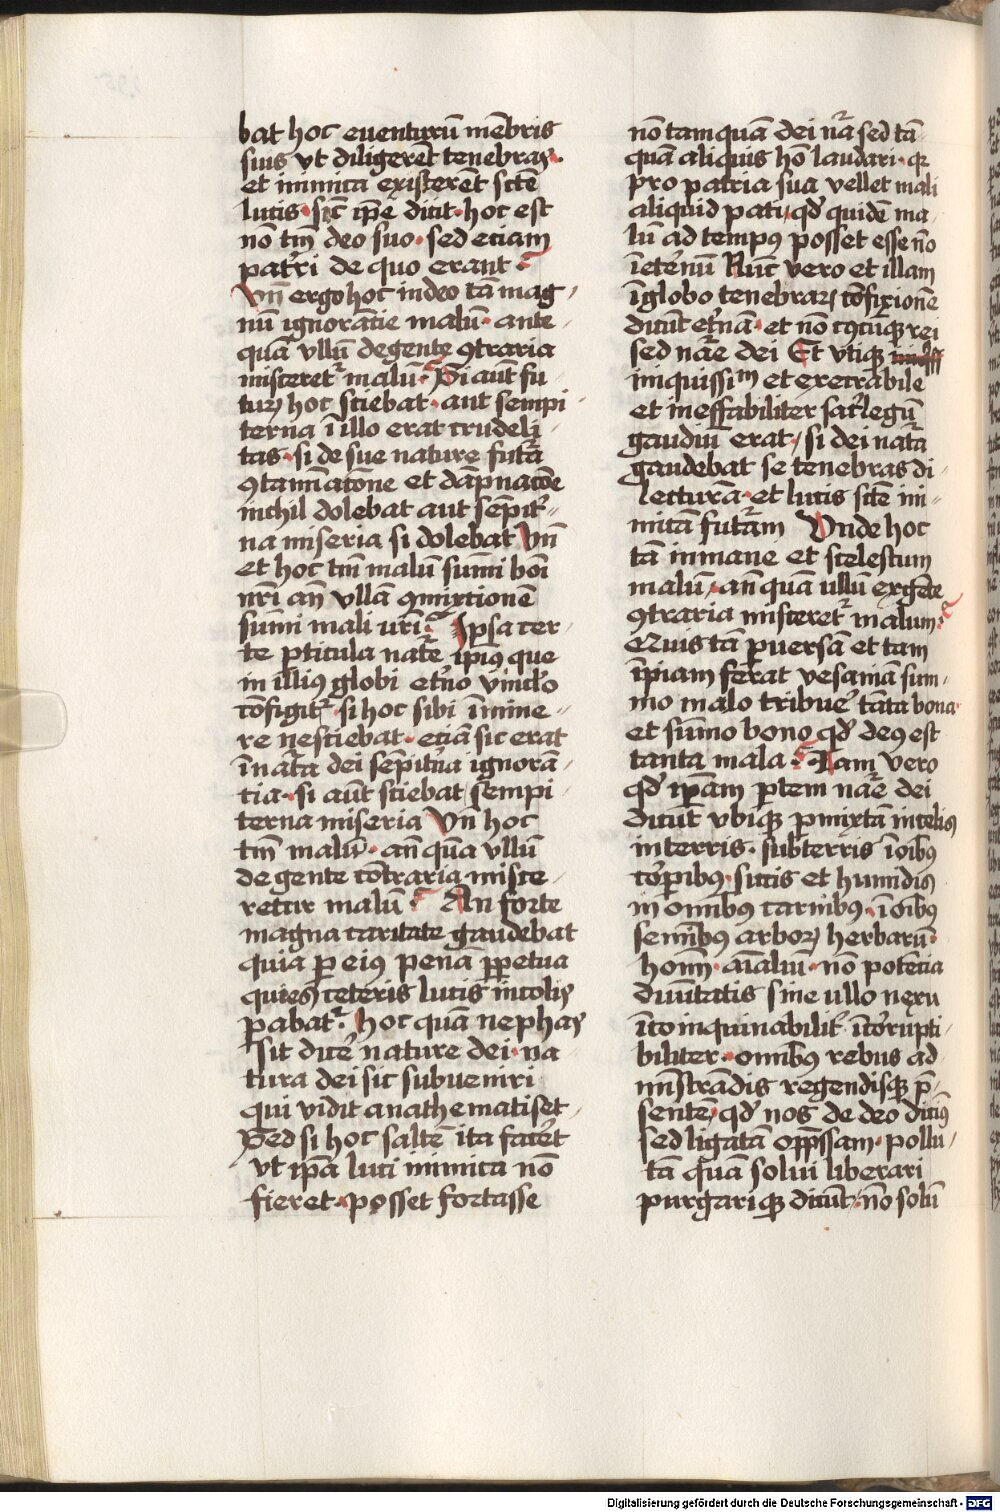 bat hoc euenturū mēbris
suis vt diligerēt tenebras.
et inimica existerēt scīe
lucis· sic̄ ip̄e dicit· hoc est
nō tm̄ deo suo· sed eciam
patri de quo erant
Vn̄ ergo hoc in deo tā mag
nū ignorācie malū· ante
quā vllū de gente ꝯtraria
misceretᷣ malū· Si aut fu
turꝝ hoc sciebat· aut sempi
terna ī illo erat crudeli
tas· si de sue nature futᷓa
ꝯtaminacōne et dāpnacōe
nichil dolebat aut sēpit᷑
na miseria si dolebat Vn̄
et hoc tm̄ malū sum̄i boni
nr̄i an̄ vllā ꝯmixtionē
sum̄i mali vr̄i· Ipsa cer
te ꝑticula nat᷑e ipiꝰ que
in illiꝰ globi et᷑no vinclo
cōfigitᷣ· si hoc sibi īmine
re nesciebat· eciā sic erat
ī natᷓa dei sēpit᷑na ignorā
cia· si aūt sciebat sempi
terna miseria Vn̄ hoc
tm̄ malū· an̄ quā vllū
de gente cōtraria misce
retur malū· An forte
magna caritate gaudebat
quia ꝑ eiꝰ penā ꝑpetua
quies ceteris lucis incolis
ꝑabatᷣ. hoc quā nephas
sit dice᷑ nature dei· na
tura dei sic subueniri
qui vidit anathematiset
Sed si hoc saltē ita fateᷣt
vt ip̄a luci inimica nō
fieret· posset fortasse
nō tamquā dei nᷓa sed tā
quā aliquis hō laudari· qꝛ
pro patria sua vellet mali
aliquid pati, qd̄ quidē ma
lū ad tempꝰ posset esse nō
īete᷑nū Nūc vero et illam
ī globo tenebraꝝ cōfixionē
dicūt et᷑nā· et nō cꝰcūqꝫ rei
sed nat᷑e dei Et vtiqꝫ
iniquissiᵐ et execrabile
et ineffabiliter sac᷑legū
gaudiū erat, si dei natᷓa
gaudebat se tenebras di
lecturā· et lucis scīe ini
micā futᷓam Vnde hoc
tā inmane et scelestum
malū, an̄ quā ullū ex gēte
ꝯtraria misceretᷣ malum·
Quis tā ꝑuersā et tam
īpiam fe᷑rat vesaniā sum
mo malo tribue᷑ tāta bona·
et sūmo bono qd̄ deꝰ est
tanta mala· Iam vero
qd̄ ip̄am ꝑtem nat᷑e dei
dicūt vbiqꝫ ꝑmixtā in celis
in terris· sub terris ī oībꝰ
corꝑibꝰ· siccis et humidis
in om̄ibꝰ carnibꝰ· ī oībꝰ
semībꝰ arboꝝ herbarū·
homī· aīaliū· nō potēcia
diuītatis sine ullo nexu
īcoinquinabilit᷑ īcorrupti
biliter· omībꝰ rebus ad
mīstrādis regendisqꝫ p̄
sentē, qd̄ nos de deo dicimꝰ
sed ligatā opp̄ssam· pollu
tā quā solui liberari
purgariqꝫ dicūt· nō solū
Digitalisierung gefördert durch die Deutsche Forschungsgemeinschaft - DFG